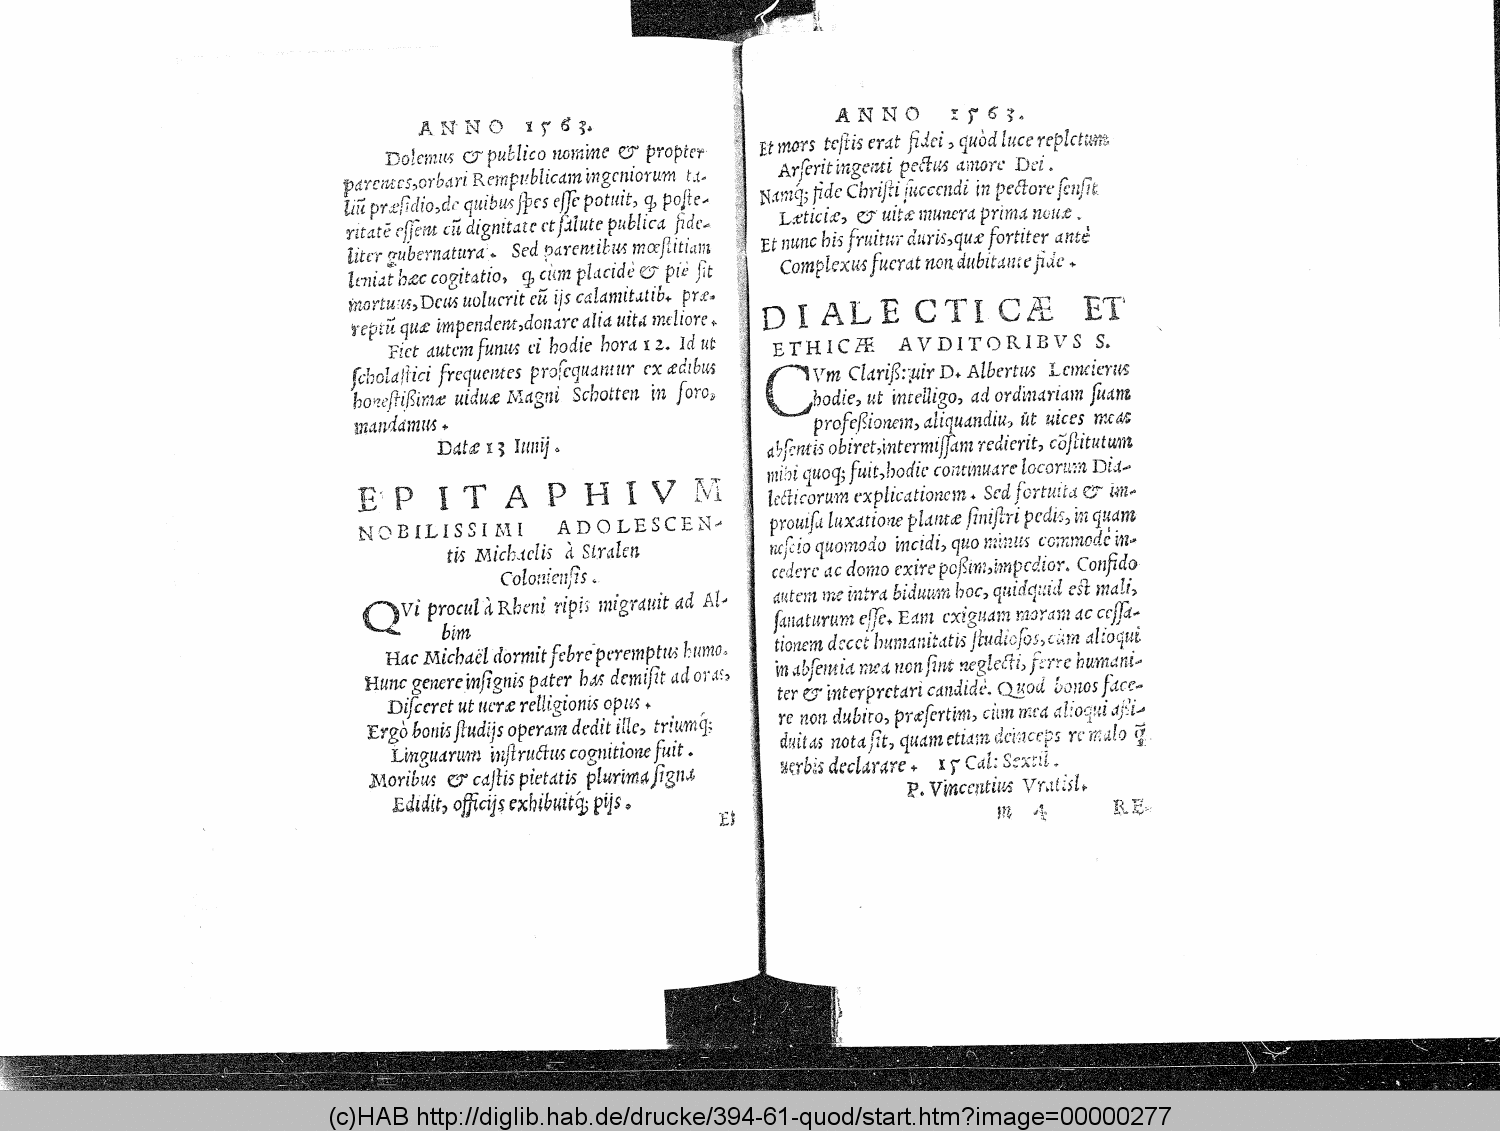 ANNO 1563.
Dolemus & publico nomine & propter
parentes, orbari Rempublicam ingeniorum ta-
liũ præsidio, de quibus spes esse potuit, ꝙ poste-
ritatẽ essent cũ dignitate et salute publica fide-
liter gubernatura. Sed parentibus mœstitiam
leniat hæc cogitatio, ꝙ cùm placidè & piè sit
mortuus, Deus uoluerit eũ ijs calamitatib. præ-
reptũ quæ impendent, donare alia uita meliore.
Fiet autem funus ei hodie hora 12. Id ut
scholastici frequentes prosequantur ex ædibus
honestißimæ uiduæ Magni Schotten in foro,
mandamus.
Datæ 13 Iunij.
EPITAPHIVM
NOBILISSIMI ADOLESCEN-
tis Michaelis à Stralen
Coloniensis.
QVi procul à Rheni ripis migrauit ad Al-
bim
Hac Michaël dormit febre peremptus humo.
Hunc genere insignis pater has demisit ad oras,
Disceret ut ueræ relligionis opus.
Ergò bonis studijs operam dedit ille, triumq́;
Linguarum instructus cognitione fuit.
Moribus & castis pietatis plurima signa
Edidit, officijs exhibuitq́; pijs.
Et
ANNO 1563.
Et mors testis erat fidei, quòd luce repletum
Arserit ingenti pectus amore Dei.
Namq́; fide Christi succendi in pectore sensit
Læticiæ, & uitæ munera prima nouæ.
Et nunc his fruitur duris, quæ fortiter antè
Complexus fuerat non dubitante fide.
DIALECTICÆ ET
ETHICÆ AVDITORIBVS S.
CVm Clariß: uir D. Albertus Lemeierus
hodie, ut intelligo, ad ordinariam suam
profeßionem, aliquandiu, ut uices meas
absentis obiret, intermissam redierit, cõstitutum
mihi quoq; fuit, hodie continuare locorum Dia-
lecticorum explicationem. Sed fortuita & im-
prouisa luxatione plantæ sinistri pedis, in quam
nescio quomodo incidi, quo minus commodè in-
cedere ac domo exire poßim, impedior. Confido
autem me intra biduum hoc, quidquid est mali,
sanaturum esse. Eam exiguam moram ac cessa-
tionem decet humanitatis studiosos, cùm alioqui
in absentia mea non sint neglecti, ferre humani-
ter & interpretari candidè. Quod bonos face-
re non dubito, præsertim, cùm mea alioqui aßi-
duitas nota sit, quam etiam deinceps re malo q̃
uerbis declarare. 15 Cal: Sextil.
P. Vincentius Vratisl.
m 4 RE-
(c)HAB http://diglib.hab.de/drucke/394-61-quod/start.htm?image=00000277